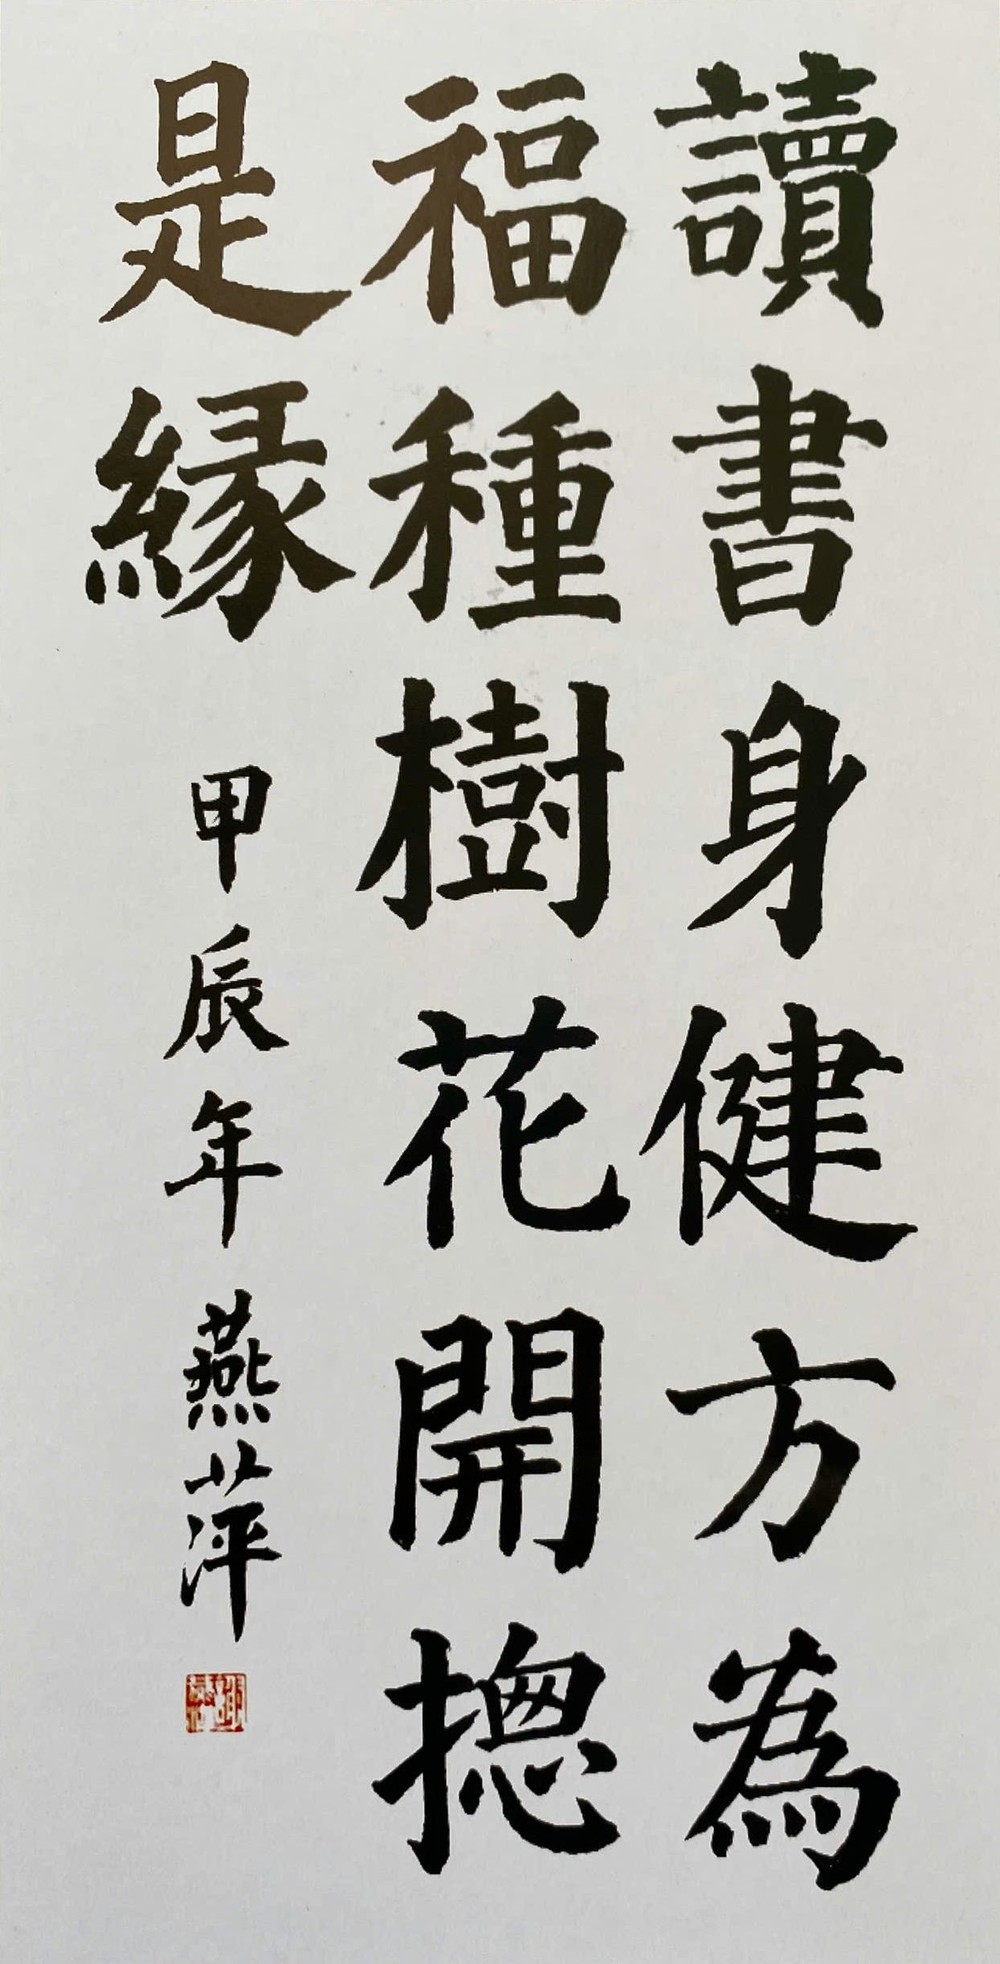 讀書身健方為
福種樹花開摠
是緣 甲辰年燕萍